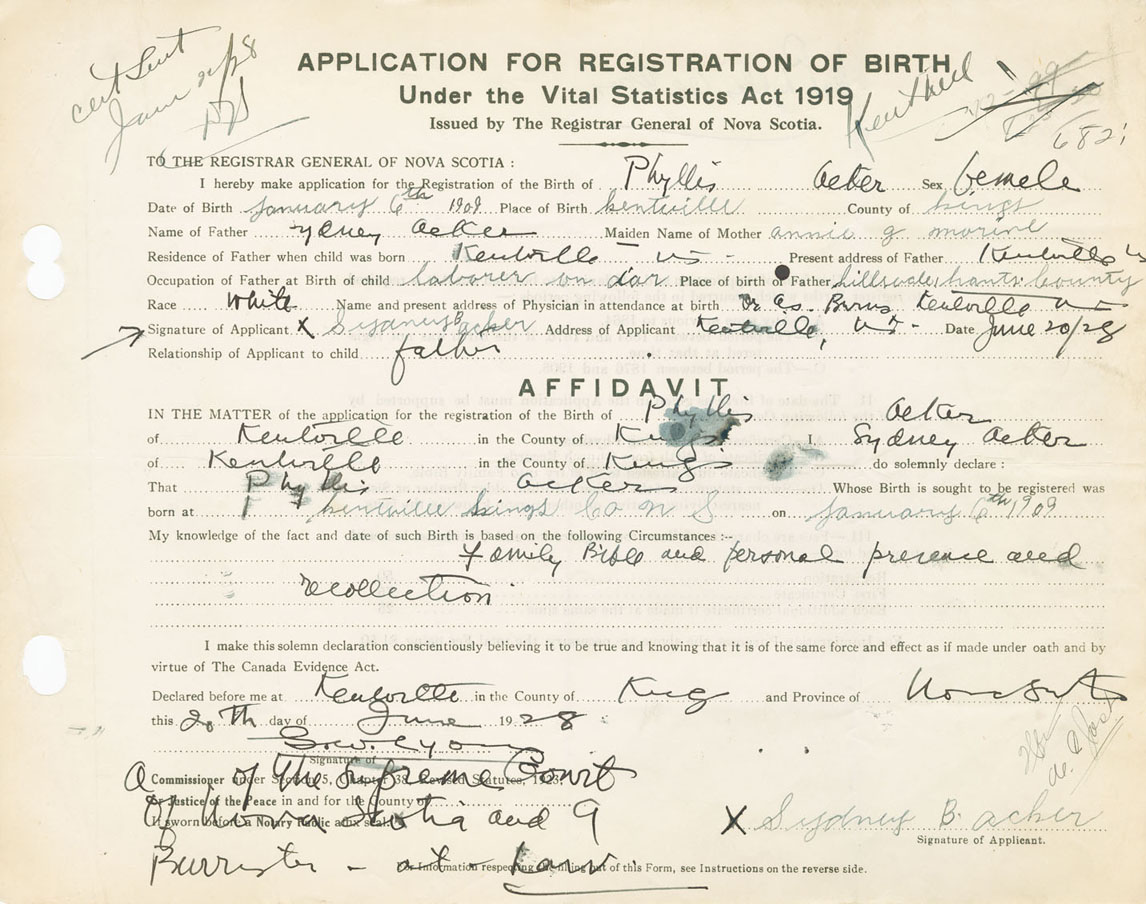 cert sent
June 21/28
APPLICATION FOR REGISTRATION OF BIRTH
Under the Vital Statistics Act 1919
Issued by The Registrar General of Nova Scotia.
Kentville
682
TO THE REGISTRAR GENERAL OF NOVA SCOTIA :
I hereby make application for the Registration of the Birth of Phyllis Acker Sex female
Date of Birth January 6th 1909 Place of Birth kentville County of kings
Name of Father Sydney Acker Maiden Name of Mother annie g morine
Residence of Father when child was born Kentville NS Present address of Father Kentville NS
Occupation of Father at Birth of child laborer on dar Place of birth of Father hillsvale, hants County
Race White Name and present address of Physician in attendance at birth Dr As. Burns Kentville NS
Signature of Applicant X Sydney B acker Address of Applicant Kentville, NS - Date June 20/28
Relationship of Applicant to child father
AFFIDAVIT
IN THE MATTER of the application for the registration of the Birth of Phyllis Acker
of Kentville in the County of Kings I, Sydney Acker
of Kentville in the County of Kings do solemnly declare :
That Phyllis Acker Whose Birth is sought to be registered was
born at kentville kings Co N S on January 6th 1909
My knowledge of the fact and date of such Birth is based on the following Circumstances :--
Family Bible and personal presence and
recollection
I make this solemn declaration conscientiously believing it to be true and knowing that it is of the same force and effect as if made under oath and by
virtue of The Canada Evidence Act.
Declared before me at Kentville in the County of King and Province of Nova Scotia
this 20th day of June 1928
Signature of
A Commissioner under Section 5, Chapter 38, Revised Statutes, 1923,
of The Supreme Court
or Justice of the Peace in and for the County of
Of Nova Scotia and a
If sworn before a Notary Public affix seal.
X Sydney B. acker
Signature of Applicant.
Barrister - at - Law.
For Information respecting the filling out of this Form, see Instructions on the reverse side.